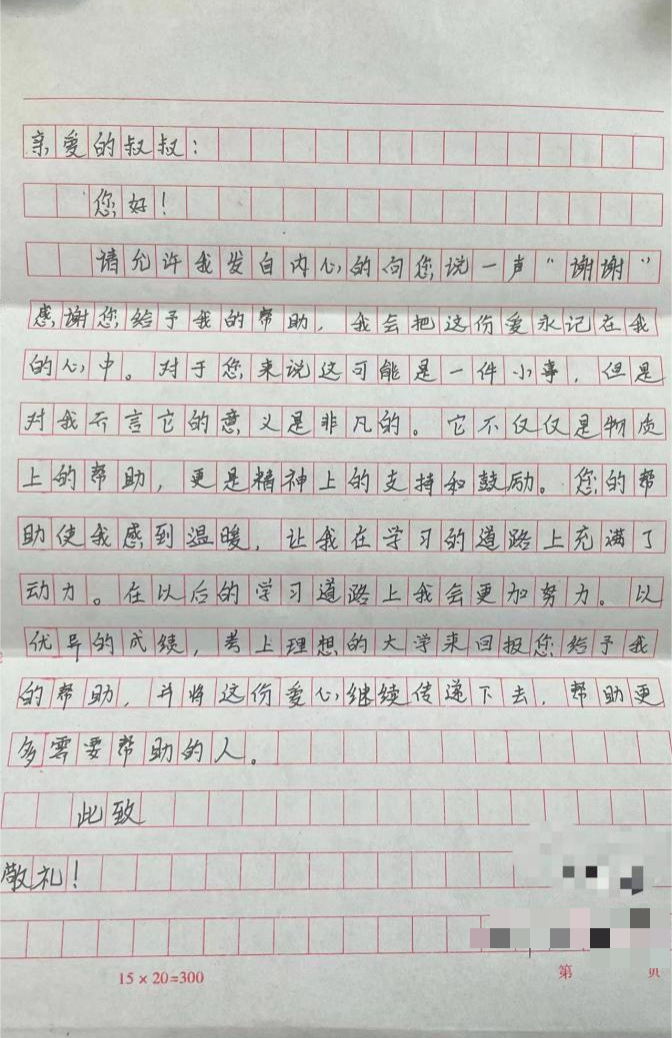 亲爱的叔叔：
您好！
请允许我发自内心的向您说一声“谢谢”
感谢您给予我的帮助，我会把这份爱永记在我
的心中。对于您来说这可能是一件小事，但是
对我而言它的意义是非凡的。它不仅仅是物质
上的帮助，更是精神上的支持和鼓励。您的帮
助使我感到温暖，让我在学习的道路上充满了
动力。在以后的学习道路上我会更加努力。以
优异的成绩，考上理想的大学来回报您给予我
的帮助，并将这份爱心继续传递下去，帮助更
多需要帮助的人。
此致
敬礼！
15×20=300
第 页